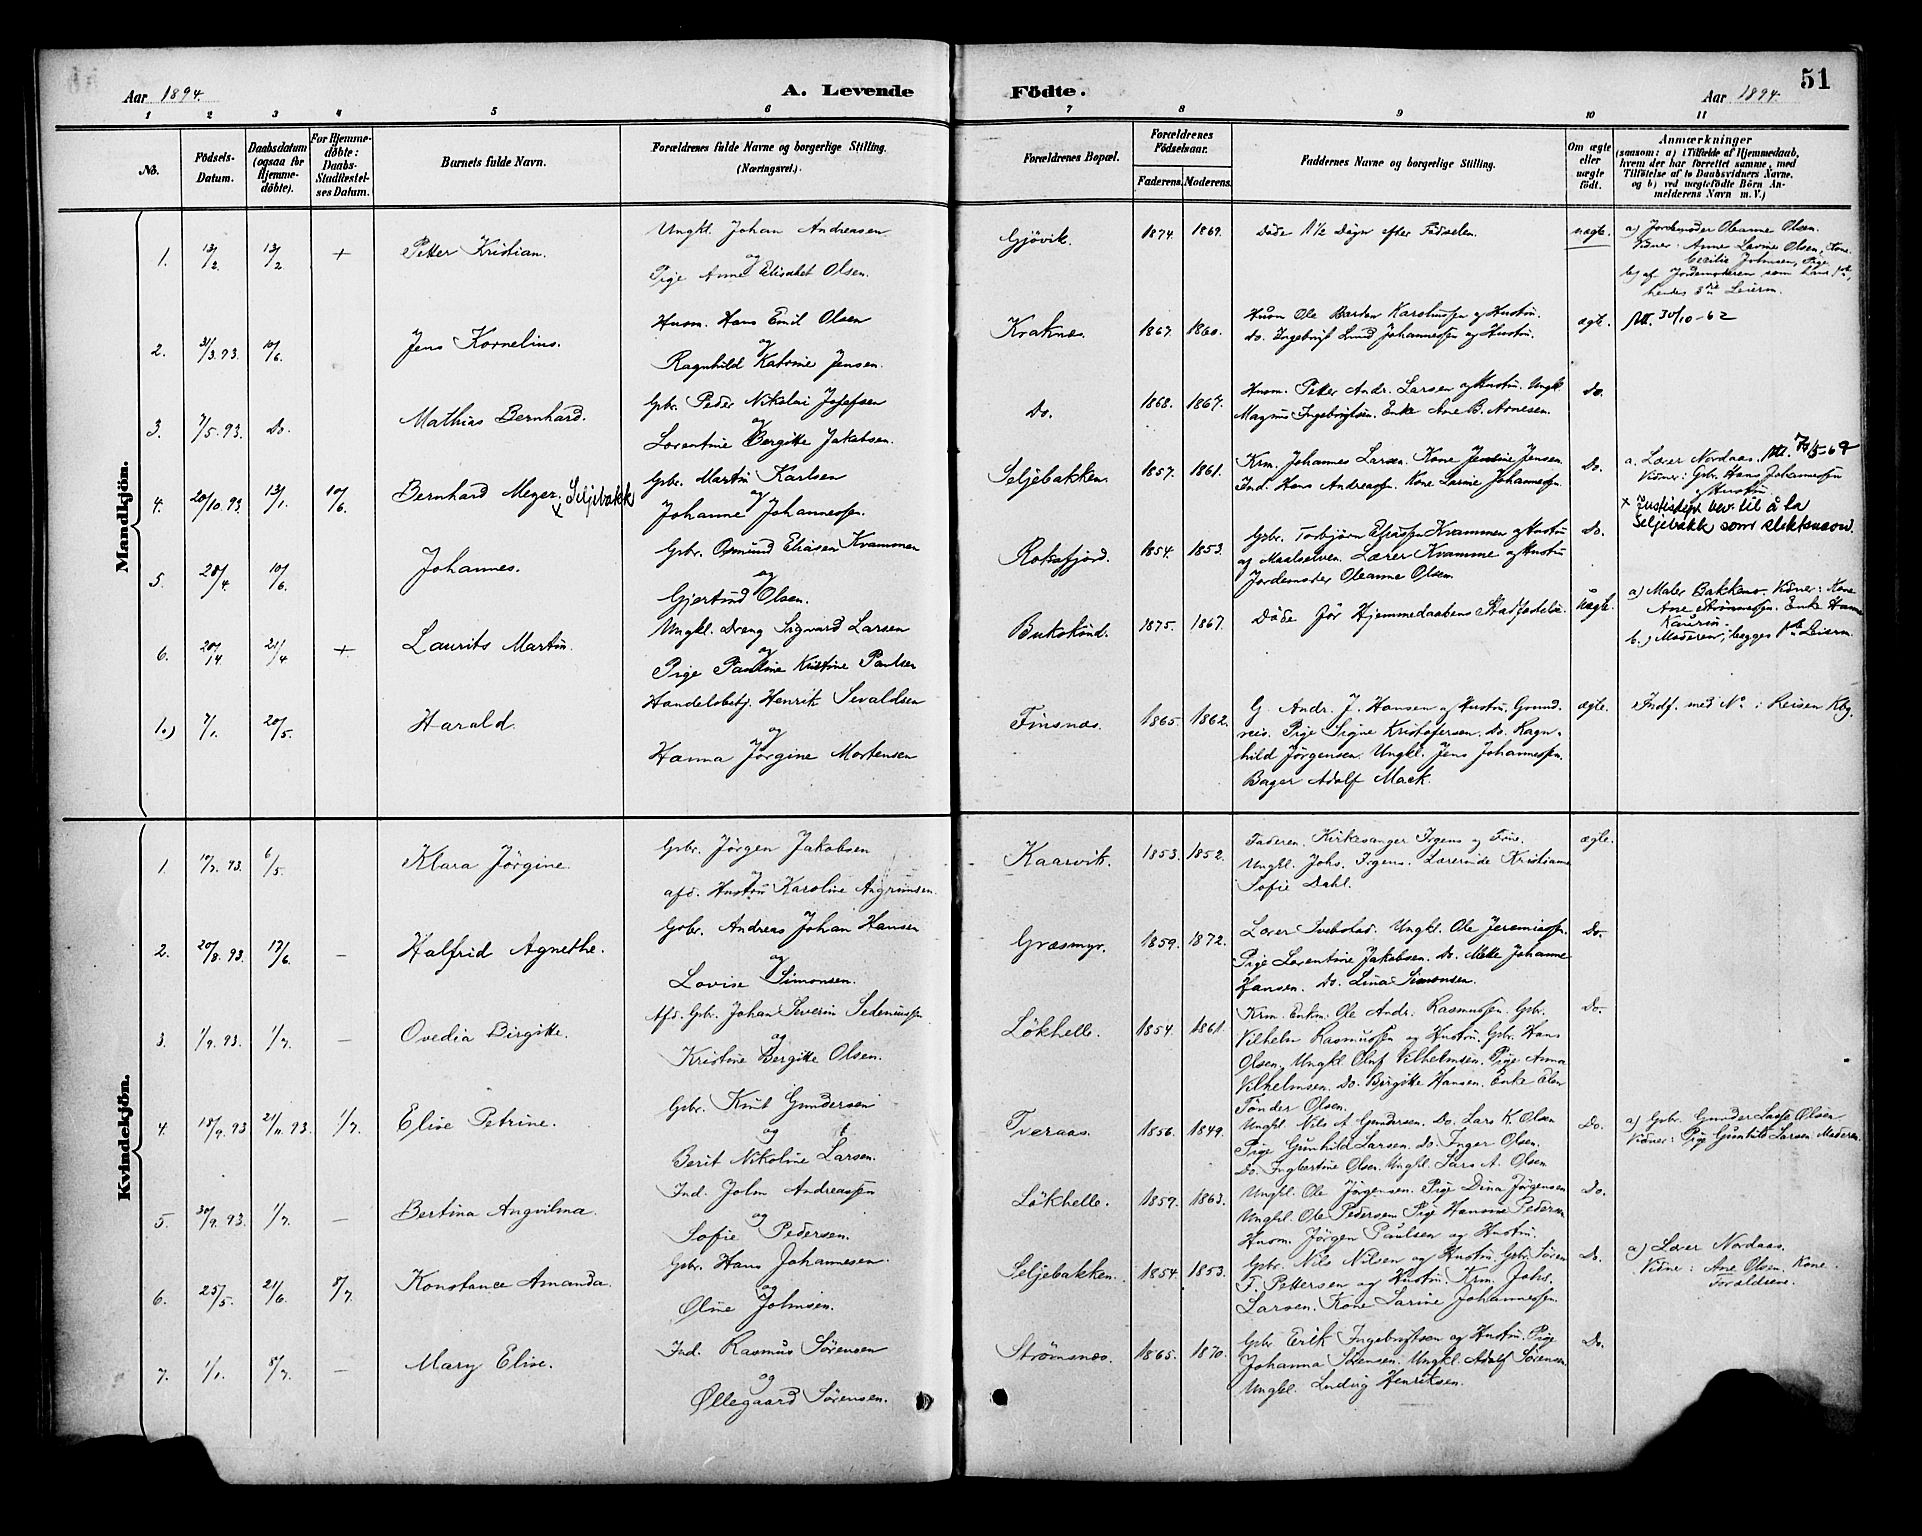 51
Aar 1894.
A. Levende
Födte.
Aar 1894.
1 2 3 4 5 6 7 8 9 10 11
No.
Födsels-Datum.
Daabsdatum (ogsaa for Hjemme-döbte).
For Hjemme-döbte: Daabs-Stadfæstel-ses Datum.
Barnets fulde Navn.
Forældrenes fulde Navne og borgerlige Stilling.
(Næringsvei.)
Forældrenes Bopæl.
Forældrenes Födselsaar.
Faderens. Moderens.
Faddernes Navne og borgerlige Stilling.
Om ægte eller uægte födt.
Anmærkninger
(saasom: a) i Tilfælde af Hjemmedaab, hvem der har forrettet samme, med Tilföielse af to Daabsvidners Navne, og b) ved uægtefödte Börn Anmelderens Navn m. V.)
Mandkjön.
1. 13/2. 13/2 + Petter Kristian.
Ungkl. Johan Andreasen
og
Pige Anne Elisabet Olsen.
Gjövik. 1874. 1869.
Döde 1 1/2 Dögn efter Födselen.
uægte.
a) Jordemoder Oleanne Olsen.
Vidner: Anne Lavine Olsen, Kone.
Cecilie Johnsen, Pige.
b) af Jordemoderen som hans 1ste,
hendes 3die Leierm.
2. 31/3.93. 10/6. Jens Kornelius.
Husm. Hans Emil Olsen
og
Ragnhild Katrine Jensen.
Kraknes. 1867. 1860.
Husm Ole Karolussen og Hustru.
do. Ingebrigt Lund Johannessen og Hustru.
ægte.
30/10-62
3. 7/5.93. Do. Mathias Bernhard.
Gbr. Peder Nikolai Josefsen
og
Lorentine Bergitte Jakobsen.
Do. 1868. 1867.
Husm. Petter Andr. Larsen og Hustru. Ungkl.
Magnus Ingebrigtsen. Enke Ane B. Arnesen.
Do.
4. 20/10.93. 13/1. 10/6. Bernhard Meyer x Seljebakk
Gbr. Martin Karlsen
og
Johanne Johannessen.
Seljebakken. 1857. 1861.
Krm. Johannes Larsen. Kone Jensine Jensen.
Ind. Hans Andreassen. Kone Larine Johannessen.
Do.
a. Lærer Nordaas.
Vidner: Gbr. Hans Johannessen
og Hustru
x Justisdept. bev. til å ta
Seljebakk som slektsnavn.
5. 28/4. 10/6. Johannes.
Gbr. Osmund Eliasen Kvammen
og
Gjertrud Olsen.
Roksfjord. 1854. 1853.
Gbr. Torbjørn Eliassen Kvammen og Hustru
af Maalselven. Lærer Kvamme og Hustru
Jordemoder Oleanne Olsen.
Do.
6. 20/4. 21/4 + Laurits Martin.
Ungkl. Dreng Sigvard Larsen
og
Pige Pauline Kristine Paulsen
Bukskind. 1875. 1867.
Döde för Hjemmedaabens Stadfæstelse.
uægte.
a) Maler Bakkeno. Vidner: Kone
Ane Strömmesen. Enke Hanna
Kaurin.
b.) Moderen; begges 1ste Leierm.
1.) 7/1. 20/5. Harald.
Handelsbetj. Henrik Sivaldsen
og
Hanna Jörgine Mortensen
Finsnæs. 1865. 1862.
G. Andr. J. Hansen og Hustru, Grund-
reis. Pige Signe Kristofersen. do. Ragn-
hild Jörgensen. Ungkl. Jens Johannessen.
Bager Adolf Mack.
ægte.
Indf. med No : Reisen Kbg.
Kvindekjön.
1. 17/7.93. 6/5. Klara Jörgine.
Gbr. Jörgen Jakobsen
og
afd. Hustru Karoline Angrimsen.
Kaarvik. 1853. 1852.
Faderen. Kirkesanger Irgens og Frue.
Ungkl. Johs. Irgens. Lærerinde Kristiane
Sofie Dahl.
ægte.
2. 20/8.93. 17/6. – Halfrid Agnethe.
Gbr. Andreas Johan Hansen
og
Lovise Simonsen.
Græsmyr. 1859. 1872.
Lærer Ivebolad. Ungkl. Ole Jeremiassen.
Pige Lorentine Jakobsen. Do. Mette Johanne
Hansen. do. Lina Simonsen.
Do.
3. 1/9.93. 1/7. – Ovedia Birgitte.
Afd. Gbr. Johan Severin Sedeniussen
og
Kristine Bergitte Olsen.
Lökhelle. 1854. 1861.
Krm. Enkm. Ole Andr. Rasmussen. Gbr.
Vilhelm Rasmussen og Hustru. Gbr. Hans
Olsen, Ungkl. Oluf Vilhelmsen. Pige Anna
Vilhelmsen. Do. Birgitte Hansen. Enke Elen
Tönder Olsen.
Do.
4. 18/9.93 21/11.93. 1/7. Elise Petrine.
Gbr. Knut Gundersen
og
Berit Nikoline Larsen.
Tveraas. 1856. 1849.
Ungkl. Nils A. Gundersen. Do. Lars K. Olsen
Pige Gunhild Larsen. do. Inger Olsen.
Do. Ingbertine Olsen. Ungkl. Lars A. Olsen
Do.
a) Gbr. Gunder Lasse Olsen
Vidner: Pige Gunhild Larsen. Moderen.
5. 30/9.93. 1/7. – Bertina Angvilma.
Ind. John Andreassen
og
Sofie Pedersen.
Lökhelle. 1859. 1863.
Ungkl. Ole Jörgensen. Pige Dina Jörgensen
Ungkl. Ole Pedersen Pige Hansine Pedersen
Husm. Jörgen Paulsen og Hustru.
Do.
6. 25/5. 21/6. 8/7. Konstance Amanda.
Gbr. Hans Johannesen.
og
Oline Johnsen.
Seljebakken. 1854. 1853.
Gbr. Nils Nilsen og Hustru. Gbr. Sören
F. Pettersen og Hustru. Krm. Johs.
Larsen. Kone Larine Johannessen.
Do.
a) Lærer Nordaas.
Vidne: Ane Olsen. Kone.
Forældrene.
7. 1/1. 8/7. – Mary Elise.
Ind. Rasmus Sörensen
og
Øllegaard Sörensen.
Strömsnes. 1865. 1870.
Gbr Erik Ingebrigtsen og Hustru. Pige
Johanna Sörensen. Ungkl. Adolf Sörensen
Ungkl. Ludvig Henriksen.
Do.